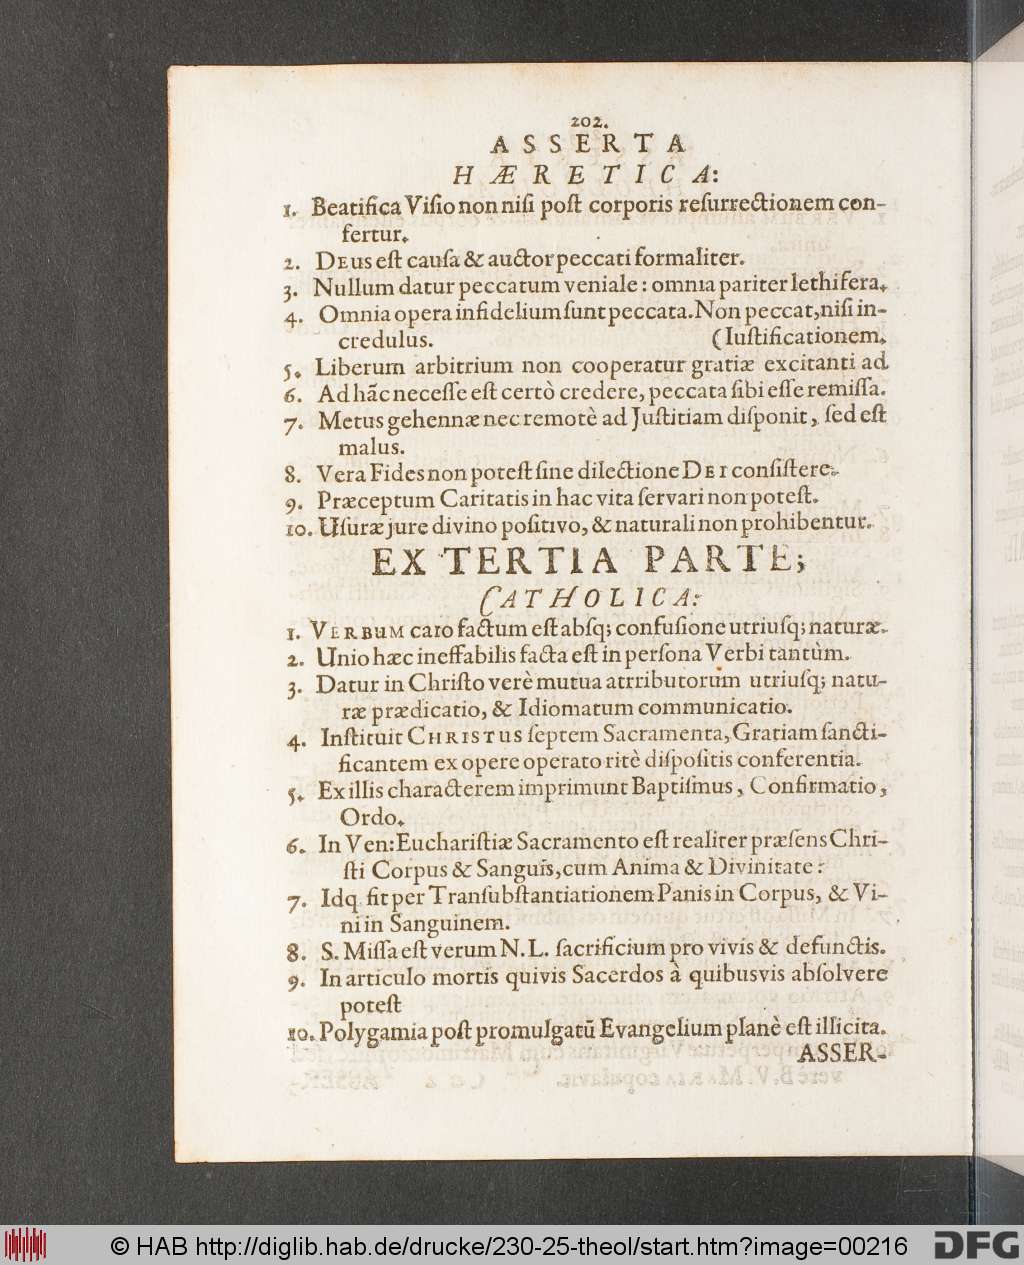 202.
ASSERTA
HÆRETICA:
1. Beatifica Viſio non niſi poſt corporis reſurrectionem con-
fertur.
2. DEus eſt cauſa & auctor peccati formaliter.
3. Nullum datur peccatum veniale: omnia pariter lethifera.
4. Omnia opera infidelium ſunt peccata. Non peccat, niſi in-
credulus. (Iuſtificationem.
5. Liberum arbitrium non cooperatur gratiæ excitanti ad
6. Ad hãc neceſſe eſt certò credere, peccata ſibi eſſe remiſſa.
7. Metus gehennæ nec remotè ad Juſtitiam diſponit, ſed eſt
malus.
8. Vera Fides non poteſt ſine dilectione DEI conſiſtere.
9. Præceptum Caritatis in hac vita ſervari non poteſt.
10. Uſuræ jure divino poſitivo, & naturali non prohibentur.
EX TERTIA PARTE;
CATHOLICA:
1. VERBUM caro factum eſt abſq; confuſione utriuſq; naturæ.
2. Unio hæc ineffabilis facta eſt in perſona Verbi tantùm.
3. Datur in Chriſto verè mutua attributorum utriuſq; natu-
ræ prædicatio, & Idiomatum communicatio.
4. Inſtituit CHRISTUS ſeptem Sacramenta, Gratiam ſancti-
ficantem ex opere operato ritè diſpoſitis conferentia.
5. Ex illis characterem imprimunt Baptiſmus, Confirmatio,
Ordo.
6. In Ven: Euchariſtiæ Sacramento eſt realiter præſens Chri-
ſti Corpus & Sanguis, cum Anima & Divinitate:
7. Idq fit per Tranſubſtantiationem Panis in Corpus, & Vi-
ni in Sanguinem.
8. S. Miſſa eſt verum N. L. ſacrificium pro vivis & defunctis.
9. In articulo mortis quivis Sacerdos à quibusvis abſolvere
poteſt
10. Polygamia poſt promulgatũ Evangelium planè eſt illicita.
ASSER-
© HAB http://diglib.hab.de/drucke/230-25-theol/start.htm?image=00216
DFG